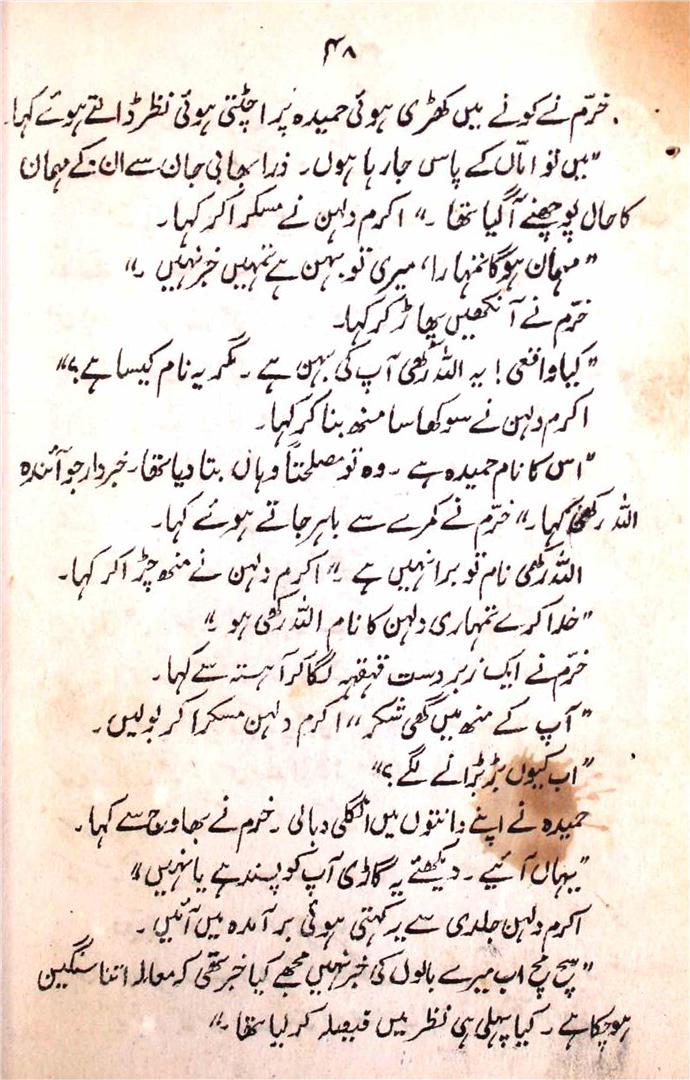 ۴۸
خرّم نے کونے میں کھڑی ہوئی حمیدہ پر اچٹتی ہوئی نظر ڈالتے ہوئے کہا۔
”میں تو امّاں کے پاس جا رہا ہوں۔ ذرا بھابی جان سے ان کے مہمان
کا حال پوچھنے آگیا تھا۔“ اکرم دلہن نے مسکرا کر کہا۔
”مہمان ہوگا تمہارا، میری تو بہن ہے تمہیں خبر نہیں۔“
خرّم نے آنکھیں پھاڑ کر کہا۔
”کیا واقعی! یہ اللہ رکھی آپ کی بہن ہے۔ مگر یہ نام کیسا ہے؟“
اکرم دلہن نے سوکھا سا منھ بنا کر کہا۔
”اس کا نام حمیدہ ہے۔ وہ تو مصلحتاً وہاں بتا دیا تھا۔ خبردار جو آئندہ
اللہ رکھی کہا۔“ خرّم نے کمرے سے باہر جاتے ہوئے کہا۔
اللہ رکھی نام تو برا نہیں ہے۔“ اکرم دلہن نے منھ چڑا کر کہا۔
”خدا کرے تمہاری دلہن کا نام اللہ رکھی ہو۔“
خرّم نے ایک زبردست قہقہہ لگا کر آہستہ سے کہا۔
”آپ کے منھ میں گھی شکر“ اکرم دلہن مسکرا کر بولیں۔
”اب کیوں بڑبڑانے لگے؟“
حمیدہ نے اپنے دانتوں میں انگلی دبالی۔ خرم نے بھاوج سے کہا۔
”یہاں آئیے۔ دیکھئے یہ گاڑی آپ کو پسند ہے یا نہیں“
اکرم دلہن جلدی سے یہ کہتی ہوئی برآمدہ میں آئیں۔
”سچ مچ اب میرے بالوں کی خبر نہیں مجھے کیا خبر تھی کہ معاملہ اتنا سنگین
ہوچکا ہے۔ کیا پہلی ہی نظر میں فیصلہ کر لیا تھا۔“